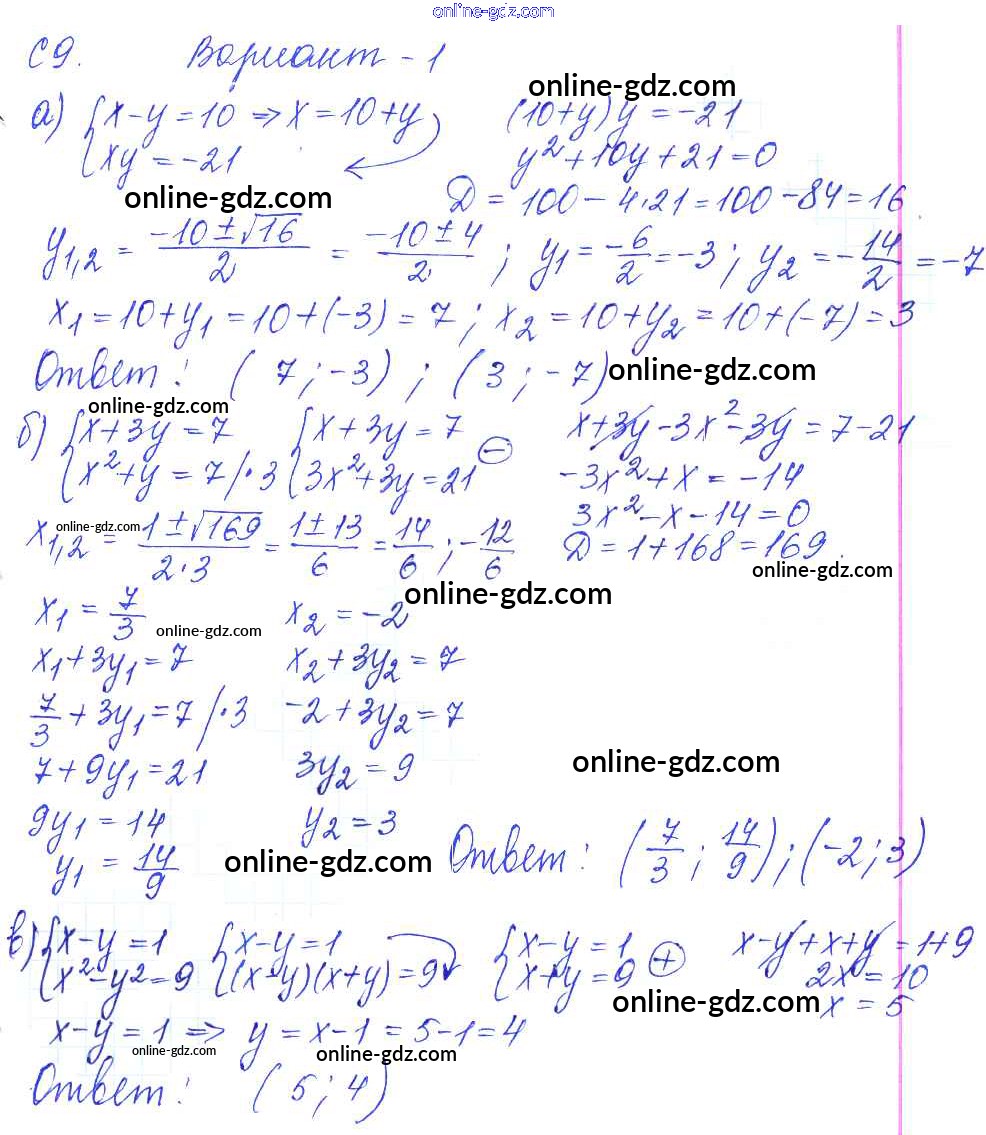 online-gdz.com
С 9. Вариант - 1
online-gdz.com
а) { x - y = 10 => x = 10 + y (10 + y) y = -21
{ xy = -21 y² + 10y + 21 = 0
online-gdz.com D = 100 - 4·21 = 100 - 84 = 16
y₁,₂ = (-10 ± √16)/2 = (-10 ± 4)/2 ; y₁ = -6/2 = -3 ; y₂ = -14/2 = -7
x₁ = 10 + y₁ = 10 + (-3) = 7 ; x₂ = 10 + y₂ = 10 + (-7) = 3
Ответ: (7 ; -3) ; (3 ; -7) online-gdz.com
online-gdz.com
б) { x + 3y = 7 { x + 3y = 7 x + 3y - 3x² - 3y = 7 - 21
{ x² + y = 7 /·3 { 3x² + 3y = 21 ⊖ -3x² + x = -14
3x² - x - 14 = 0
x₁,₂ online-gdz.com = (1 ± √169)/(2·3) = (1 ± 13)/6 = 14/6 ; -12/6 D = 1 + 168 = 169.
online-gdz.com
online-gdz.com
x₁ = 7/3 x₂ = -2
online-gdz.com
x₁ + 3y₁ = 7 x₂ + 3y₂ = 7
7/3 + 3y₁ = 7 /·3 -2 + 3y₂ = 7
7 + 9y₁ = 21 3y₂ = 9 online-gdz.com
9y₁ = 14 y₂ = 3
y₁ = 14/9 online-gdz.com Ответ: (7/3 ; 14/9) ; (-2 ; 3)
в) { x - y = 1 { x - y = 1 { x - y = 1 x - y + x + y = 1 + 9
{ x² - y² = 9 { (x - y)(x + y) = 9 { x + y = 9 ⊕ 2x = 10
online-gdz.com x = 5
x - y = 1 => y = x - 1 = 5 - 1 = 4
online-gdz.com online-gdz.com
Ответ: (5 ; 4)
online-gdz.com